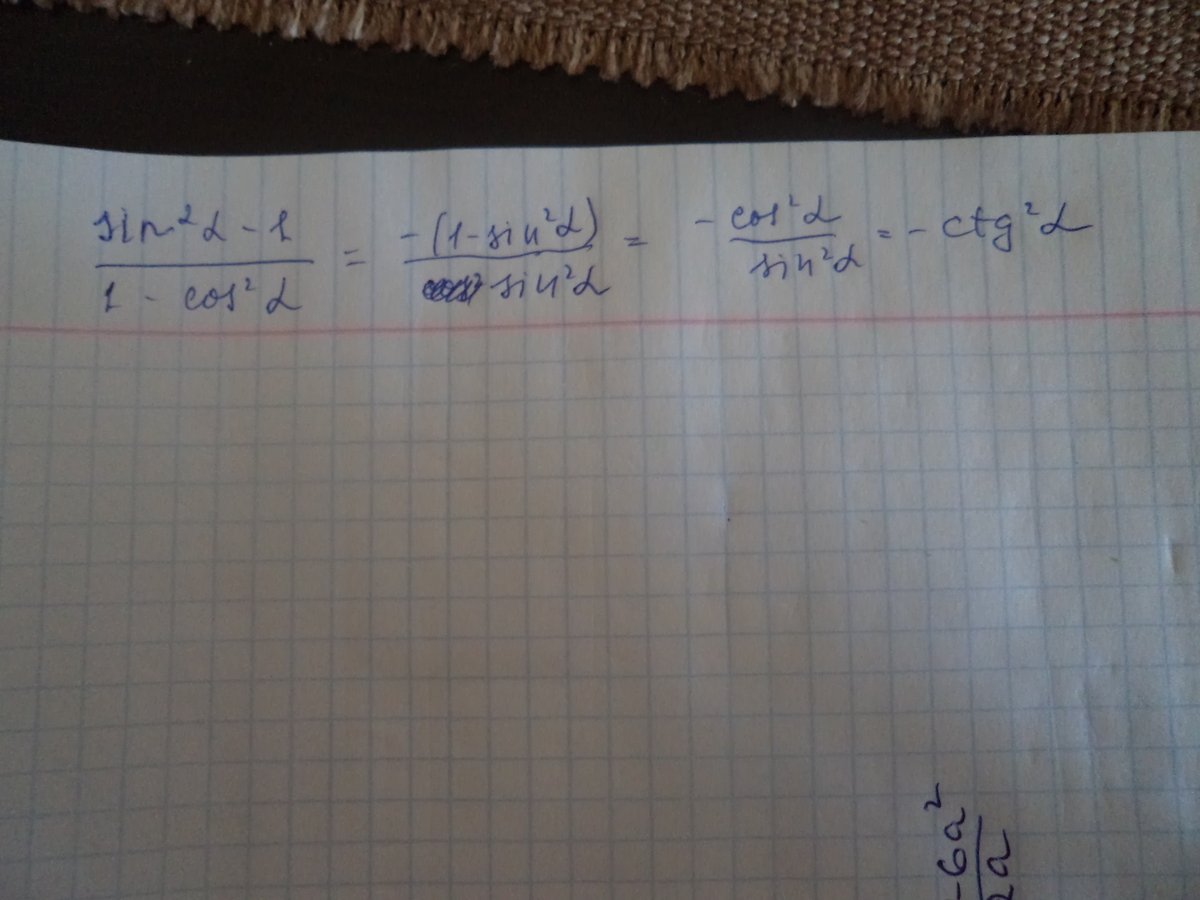 (sin²α - 1)/(1 - cos²α) = (-(1-sin²α))/(sin²α) = -(cos²α)/(sin²α) = -ctg²α
-6a²